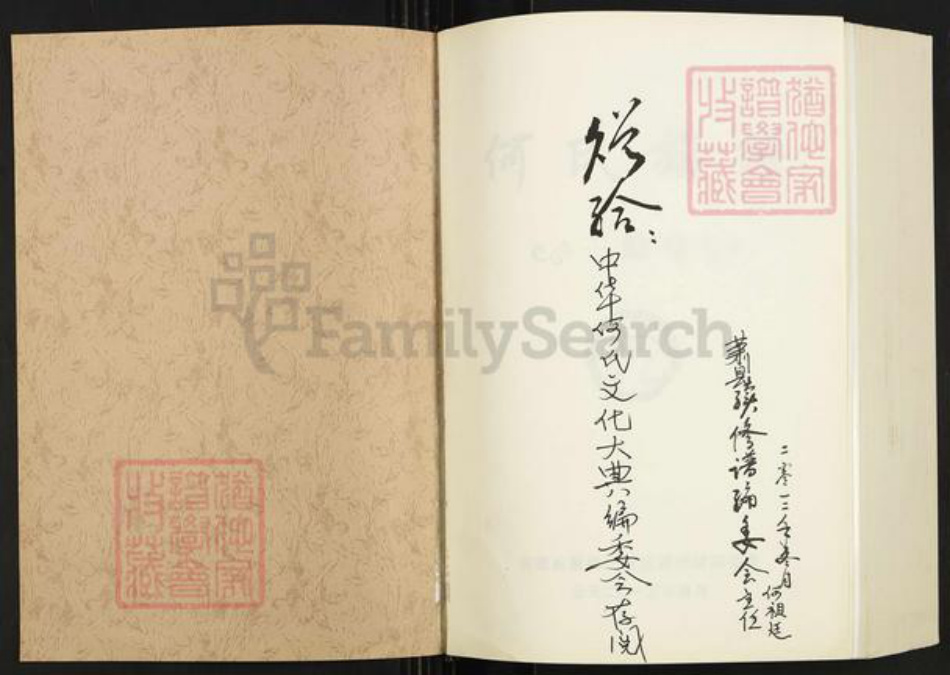 犹他家
譜學會
收藏
赠给：
中华何氏文化大典编委会存阅
萧县续修谱编委会主任
何祖廷
二零一二年冬月
FamilySearch
犹他家
譜學會
收藏